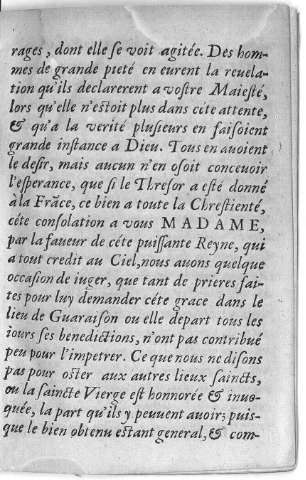 rages, dont elle ſe voit agitée. Des hom-
mes de grande pieté en eurent la reuela-
tion qu'ils declarerent a voſtre Maieſté,
lors qu'elle n'eſtoit plus dans cète attente,
& qu'a la verité pluſieurs en faiſoient
grande inſtance a Dieu. Tous en auoient
le deſir, mais aucun n'en oſoit conceuoir
l'eſperance, que ſi le Threſor a eſté donné
à la Frãce, ce bien a toute la Chreſtienté,
céte conſolation a vous MADAME,
par la faueur de céte puiſſante Reyne, qui
a tout credit au Ciel, nous auons quelque
occaſion de iuger, que tant de prieres fai-
tes pour luy demander céte grace dans le
lieu de Guaraiſon ou elle depart tous les
iours ſes benedictions, n'ont pas contribué
peu pour l'impetrer. Ce que nous ne diſons
pas pour oſter aux autres lieux ſaincts,
ou la ſaincte Vierge eſt honnorée & inuo-
quée, la part qu'ils y peuuent auoir; puiſ-
que le bien obtenu eſtant general, & com-